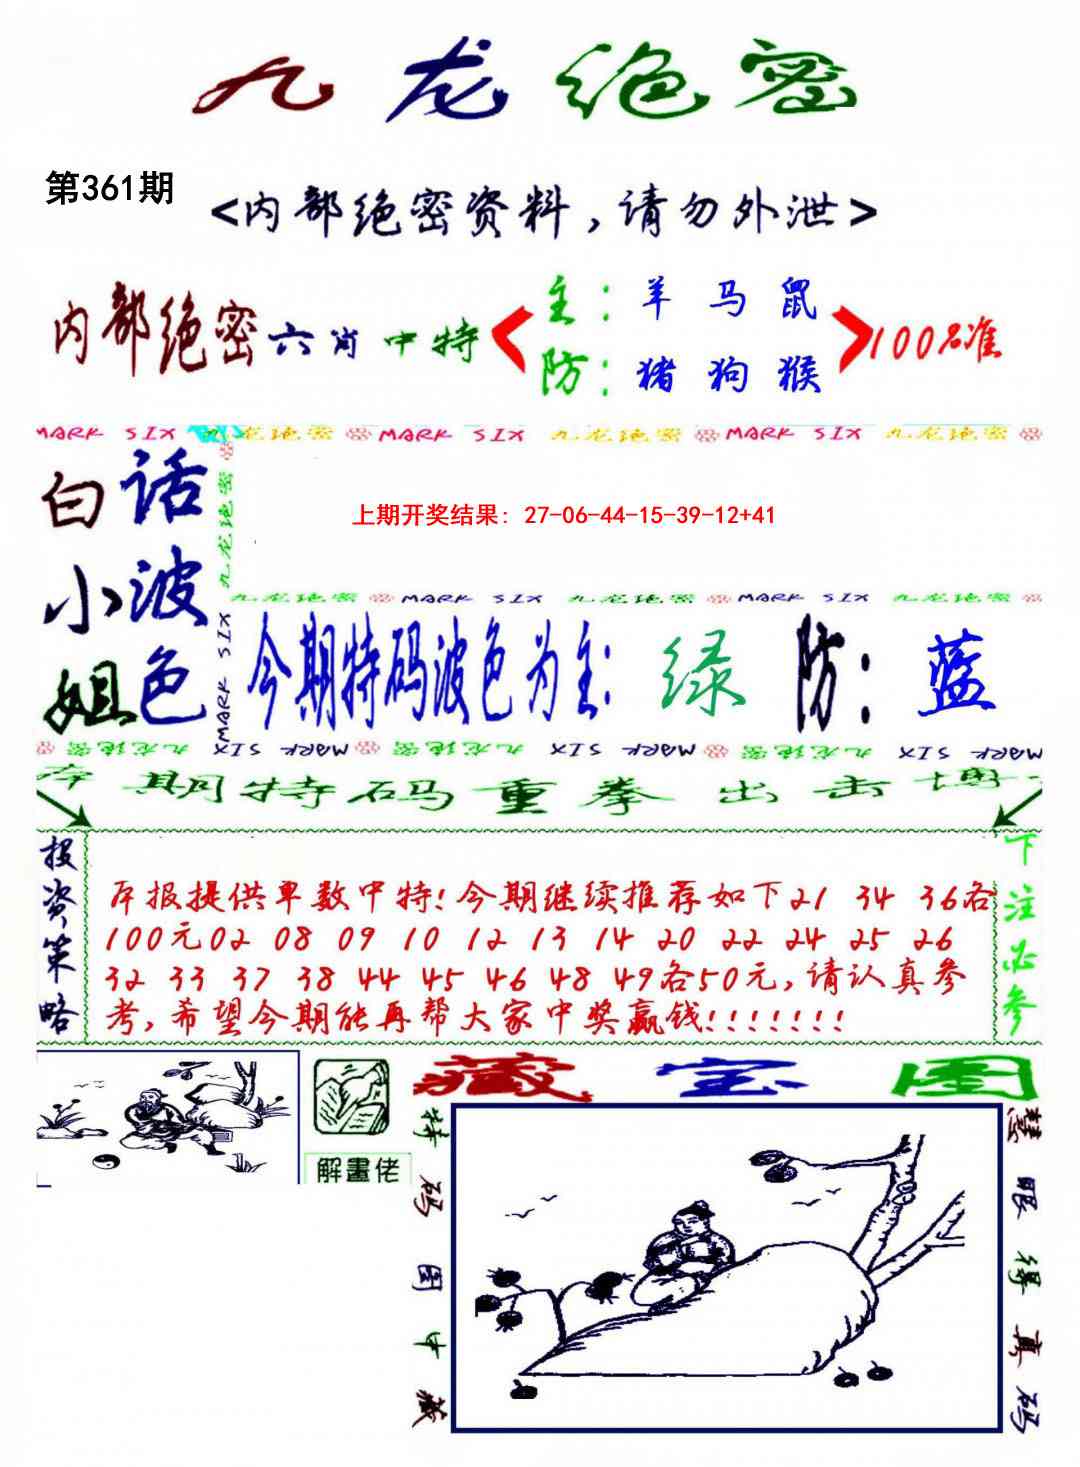 九龙绝密
第361期
<内部绝密资料,请勿外泄>
内部绝密六肖中特
主:羊 马 鼠
防:猪 狗 猴
100%准
MARK SIX 九龙绝密 MARK SIX 九龙绝密 MARK SIX 九龙绝密
白话
小波
姐色
九龙绝密
MARK SIX
上期开奖结果: 27-06-44-15-39-12+41
九龙绝密 MARK SIX 九龙绝密 MARK SIX 九龙绝密
今期特码波色为主: 绿 防: 蓝
九龙绝密 MARK SIX 九龙绝密 MARK SIX 九龙绝密 MARK SIX
本期特码重拳出击博
投资策略
本报提供单数中特!今期继续推荐如下21 34 36各
100元02 08 09 10 12 13 14 20 22 24 25 26
32 33 37 38 44 45 46 48 49各50元,请认真参
考,希望今期能再帮大家中奖赢钱!!!!!!!
下注必参
解畫佬
藏宝图
特码图中藏
慧眼得真码